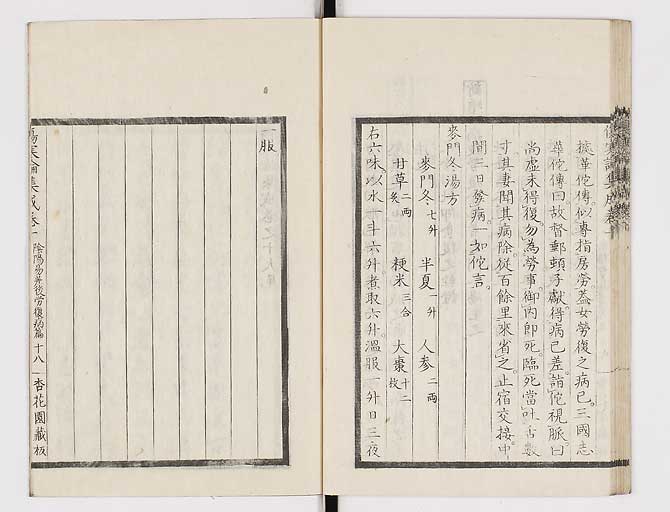 據華佗傳似專指房勞蓋女勞復之病已三國志
華佗傳曰故督郵頓子獻得病已差詣佗視脈曰
尚虛未得復勿為勞事御內即死臨死當吐舌數
寸其妻聞其病除從百餘里來省之止宿交接中
間三日發病一如佗言
麥門冬湯方
麥門冬七升 半夏一升 人參二兩
甘草二兩炙 粳米三合 大棗十二枚
右六味以水一斗六升煮取六升溫服一升日三夜
一服
傷寒論集成卷十 陰陽易差後勞復病篇 十八 杏花園藏板